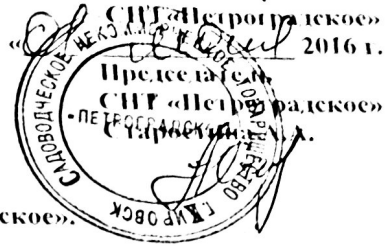 СНТ «Петроградское»
2016 г.
Председатель
СНТ «Петроградское»
САДОВОДЧЕСКОЕ НЕКОММЕРЧЕСКОЕ ТОВАРИЩЕСТВО
ПЕТРОГРАДСКОЕ
г. КИРОВСК
ское».